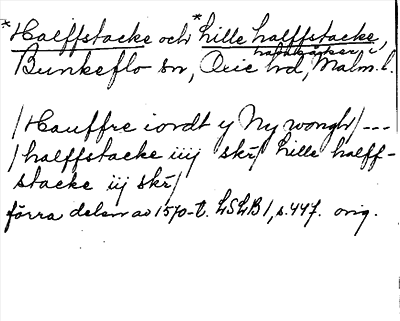 *Halffstacke och *hille halffstacke,
i
Bunkeflo sn, Oxie hd, Malm. l.
/Hauffre iordt y Ny wongh/ ---
/halffstacke iiij skr/ hille halff-
stacke iij skr/
förra delen av 1570-t. LSLB 1, s. 447. orig.